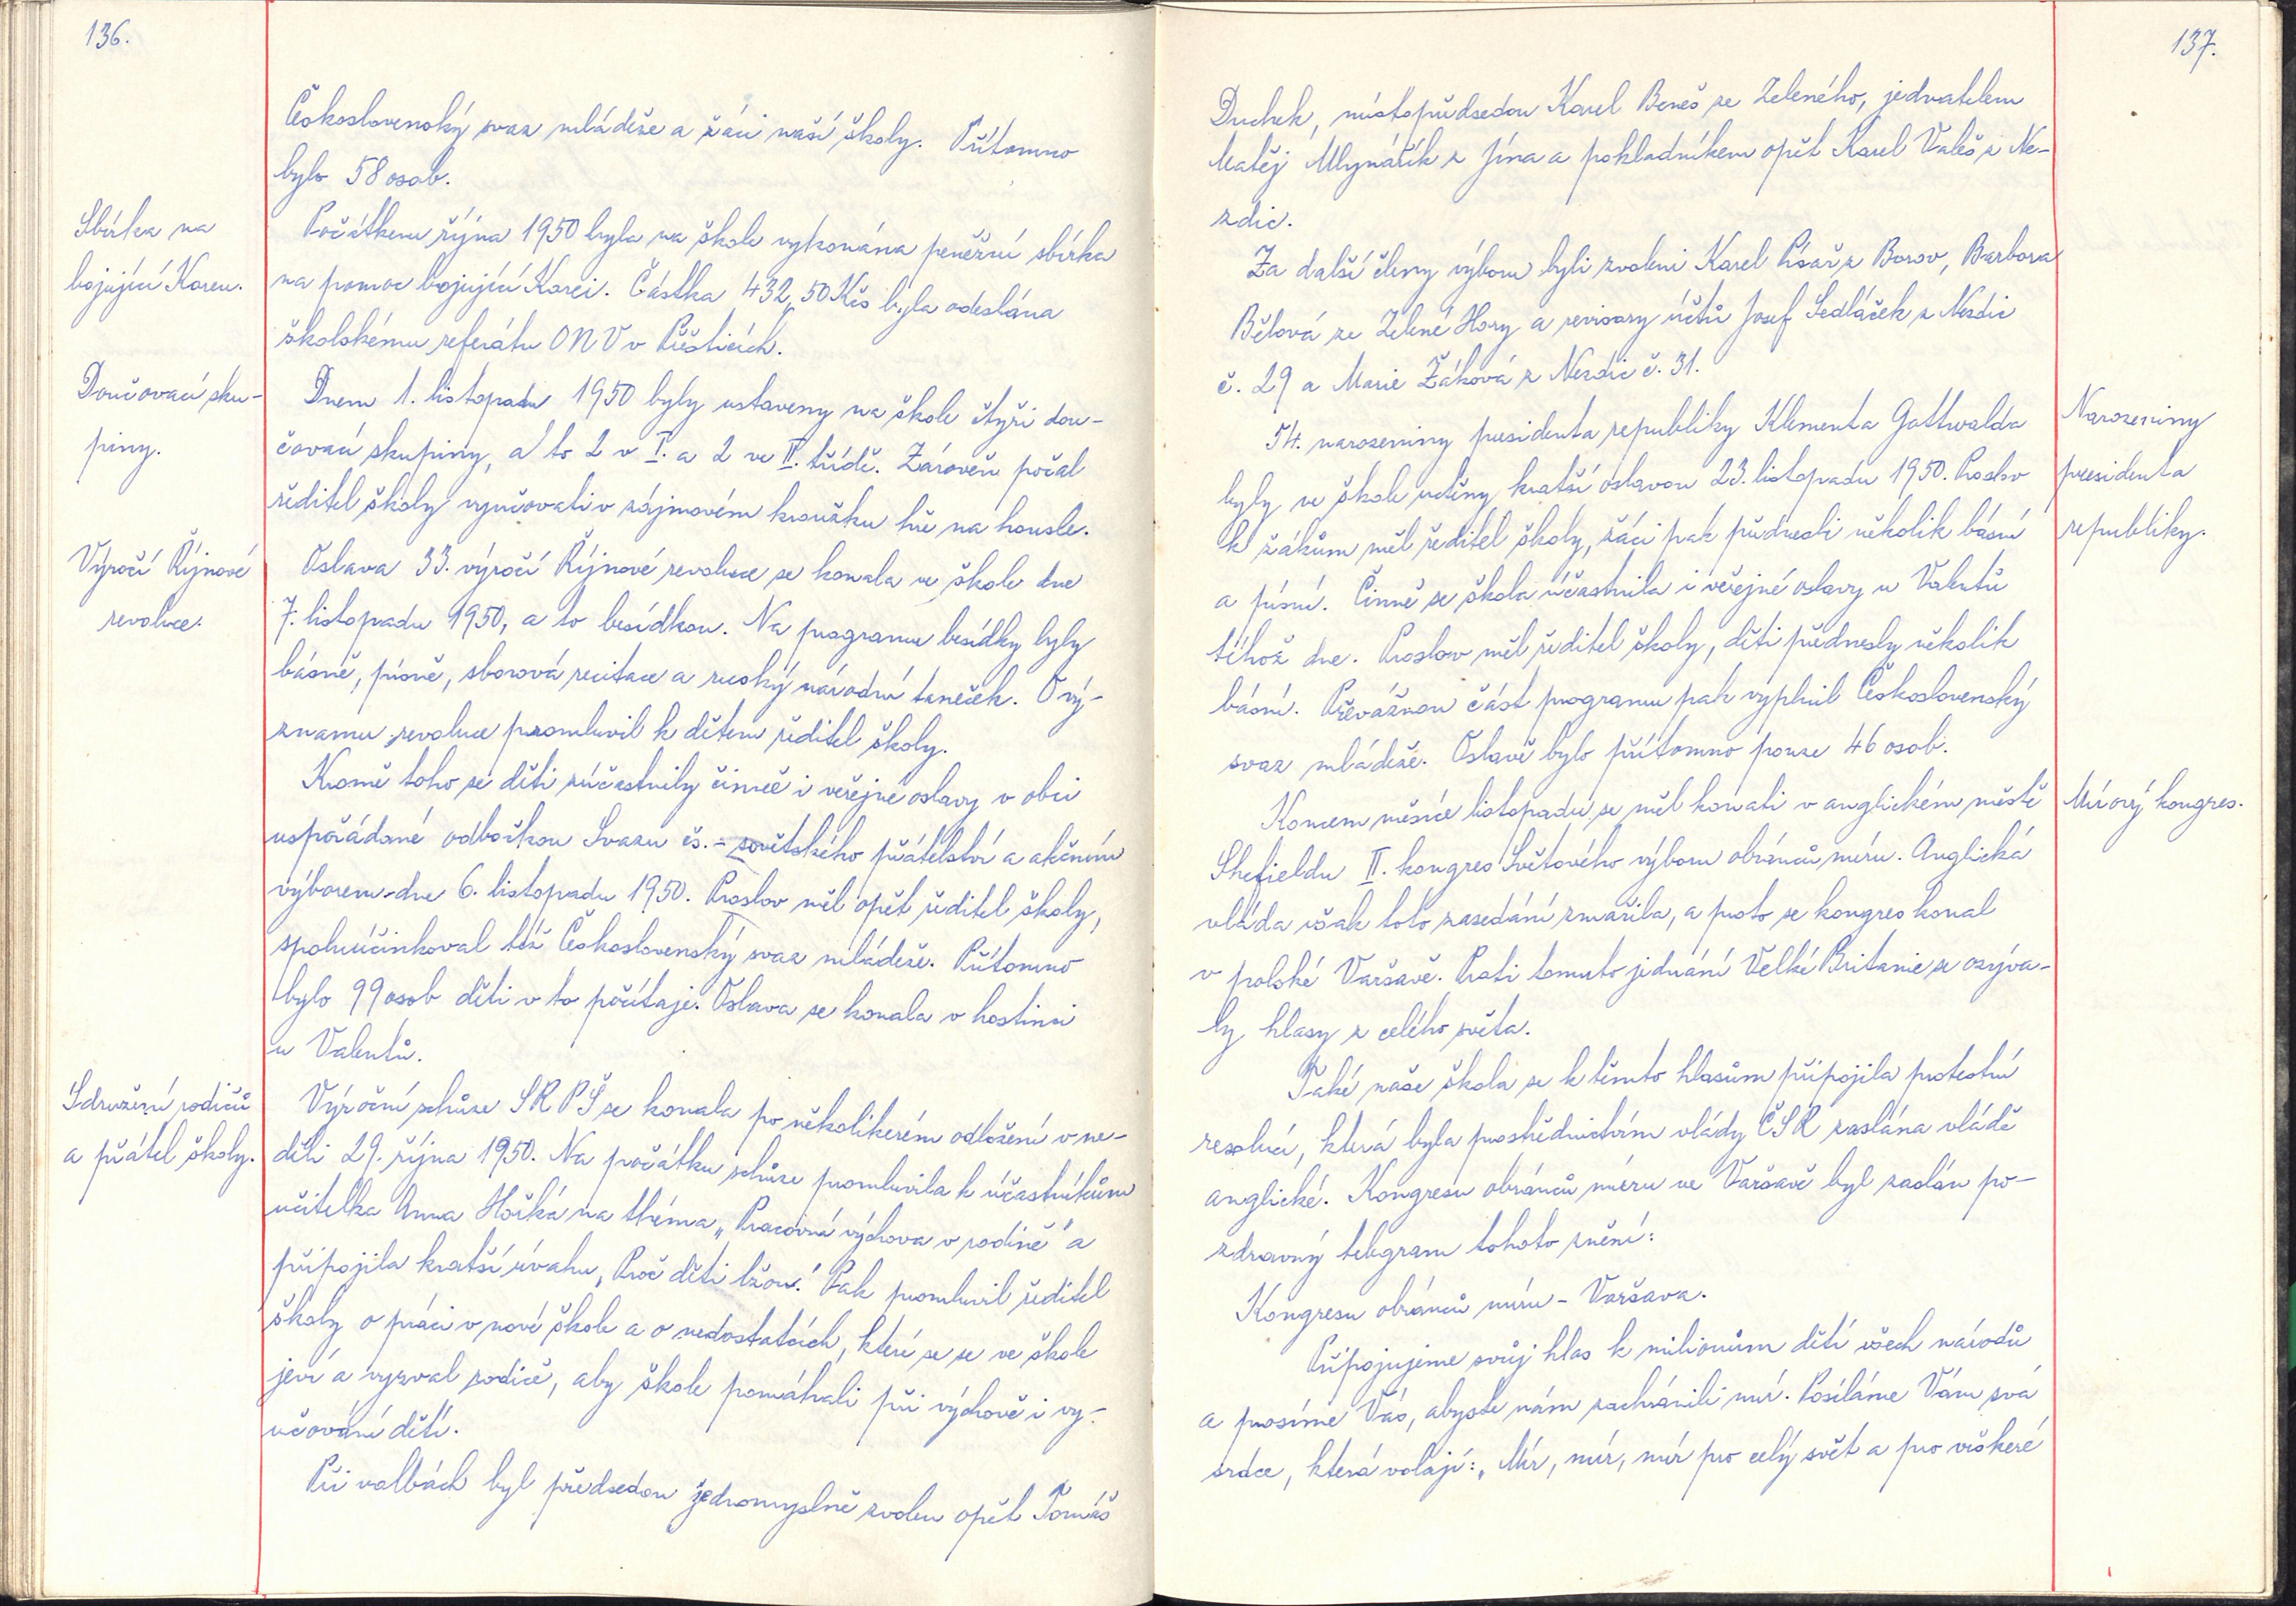 136.
Československý svaz mládeže a žáci naší školy. Přítomno
bylo 58 osob.
Sbírka na
bojující Koreu.
Počátkem října 1950 byla na škole vykonána peněžní sbírka
na pomoc bojující Korei. Částka 432,50 Kčs byla odeslána
školskému referátu ONV v Přešticích.
Doučovací sku-
piny.
Dnem 1. listopadu 1950 byly ustaveny na škole čtyři dou-
čovací skupiny, a to 2 v I. a 2 ve II. třídě. Zároveň počal
ředitel školy vyučovati v zájmovém kroužku hře na housle.
Výročí Říjnové
revoluce.
Oslava 33. výročí Říjnové revoluce se konala ve škole dne
7. listopadu 1950, a to besídkou. Na programu besídky byly
básně, písně, sborová recitace a ruský národní taneček. O vý-
znamu revoluce promluvil k dětem ředitel školy.
Kromě toho se děti zúčastnily činně i veřejné oslavy v obci
uspořádané odbočkou Svazu čs.-sovětského přátelství a akčním
výborem dne 6. listopadu 1950. Proslov měl opět ředitel školy,
spoluúčinkoval též Československý svaz mládeže. Přítomno
bylo 99 osob děti v to počítaje. Oslava se konala v hostinci
u Valentů.
Sdružení rodičů
a přátel školy.
Výroční schůze SRPŠ se konala po několikerém odložení v ne-
děli 29. října 1950. Na počátku schůze promluvila k účastníkům
učitelka Anna Hořká na théma „Pracovná výchova v rodině" a
připojila kratší úvahu „Proč děti lžou." Pak promluvil ředitel
školy o práci v nové škole a o nedostatcích, které se se ve škole
jeví a vyzval rodiče, aby škole pomáhali při výchově i vy-
učování dětí.
Při volbách byl předsedou jednomyslně zvolen opět Tomáš
137.
Duchek, místopředsedou Karel Beneš ze Zeleného, jednatelem
Matěj Mlynářík z Jína a pokladníkem opět Karel Valeš z Ne-
zdic.
Za další členy výboru byli zvoleni Karel Písař z Borov, Barbora
Bělová ze Zelené Hory a revisory účtů Josef Sedláček z Nezdic
č. 29 a Marie Žáková z Nezdic č. 31.
Narozeniny
presidenta
republiky.
54. narozeniny presidenta republiky Klementa Gottwalda
byly ve škole uctěny kratší oslavou 23. listopadu 1950. Proslov
k žákům měl ředitel školy, žáci pak přednesli několik básní
a písní. Činně se škola účastnila i veřejné oslavy u Valentů
téhož dne. Proslov měl ředitel školy, děti přednesly několik
básní. Převážnou část programu pak vyplnil Československý
svaz mládeže. Oslavě bylo přítomno pouze 46 osob.
Mírový kongres.
Koncem měsíce listopadu se měl konati v anglickém městě
Shefieldu II. kongres Světového výboru obránců míru. Anglická
vláda však toto zasedání zmařila, a proto se kongres konal
v polské Varšavě. Proti tomuto jednání Velké Britanie se ozýva-
ly hlasy z celého světa.
Také naše škola se k těmto hlasům připojila protestní
resolucí, která byla prostřednictvím vlády ČSR zaslána vládě
anglické. Kongresu obránců míru ve Varšavě byl zaslán po-
zdravný telegram tohoto znění:
Kongresu obránců míru - Varšava.
Připojujeme svůj hlas k milionům dětí všech národů
a prosíme Vás, abyste nám zachránili mír. Posíláme Vám svá
srdce, která volají: „Mír, mír, mír pro celý svět a pro veškeré